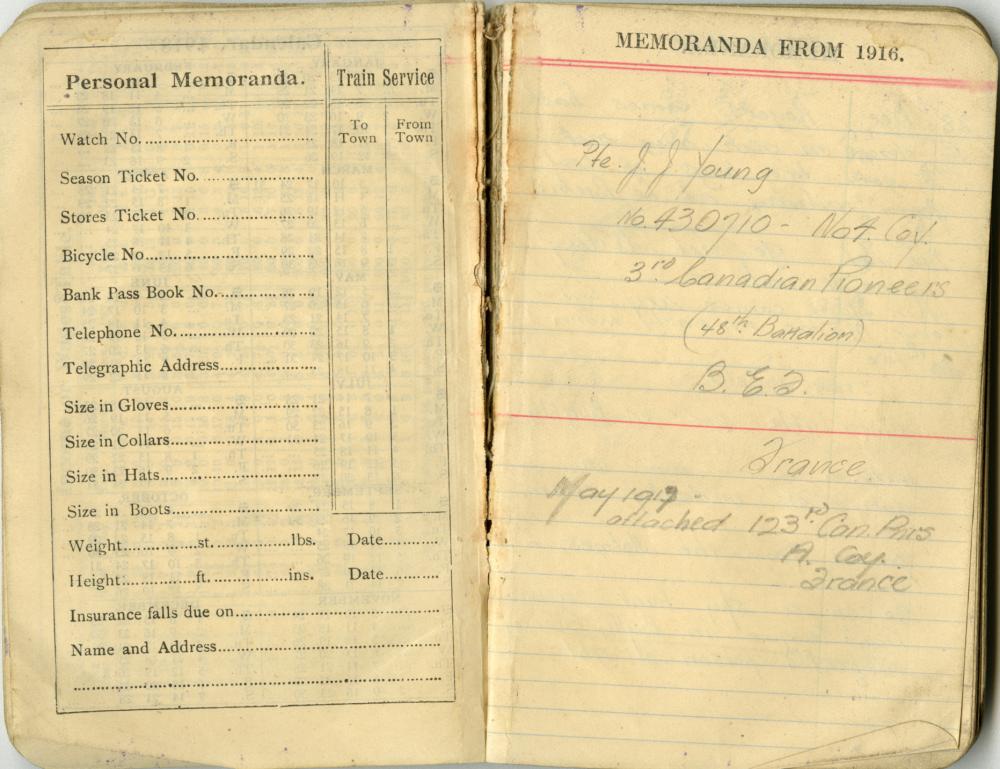 Personal Memoranda.
Train Service
To Town
From Town
Watch No.
Season Ticket No.
Stores Ticket No.
Bicycle No.
Bank Pass Book No.
Telephone No.
Telegraphic Address
Size in Gloves
Size in Collars
Size in Hats
Size in Boots
Weight st. lbs. Date
Height ft. ins. Date
Insurance falls due on
Name and Address
MEMORANDA FROM 1916.
Pte. J. J Young
No. 430710 - No 4. Coy.
3rd Canadian Pioneers
(48th Battalion)
B. E. F.
France
May 1917.
attached 123rd Can. Pnrs
A. Coy.
France